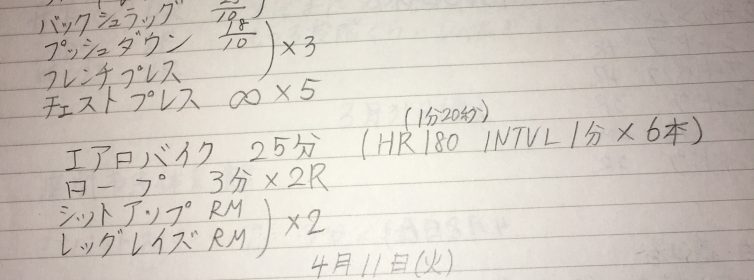 バックシュラッグ 25/10
プッシュダウン 18/10 ) ×3
フレンチプレス
チェストプレス ∞ ×5
(1分20秒)
エアロバイク 25分 (HR180 INTVL 1分 × 6本)
ロープ 3分 × 2R
シットアップ RM
レッグレイズ RM ) ×2
4月11日(火)